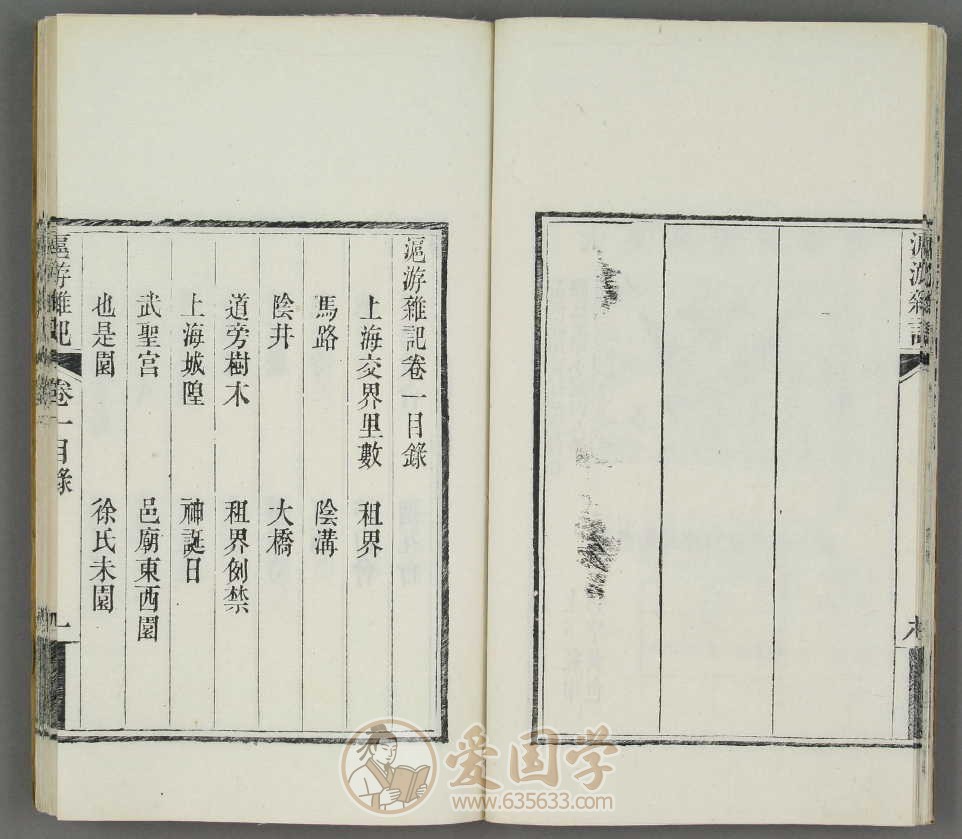 滬游雜記
六
滬游雜記卷一目錄
上海交界里數 租界
馬路 陰溝
陰井 大橋
道旁樹木 租界例禁
上海城隍 神誕日
武聖宮 邑廟東西園
也是園 徐氏未園
滬游雜記 卷一目錄 一
爱国学
www.635633.com